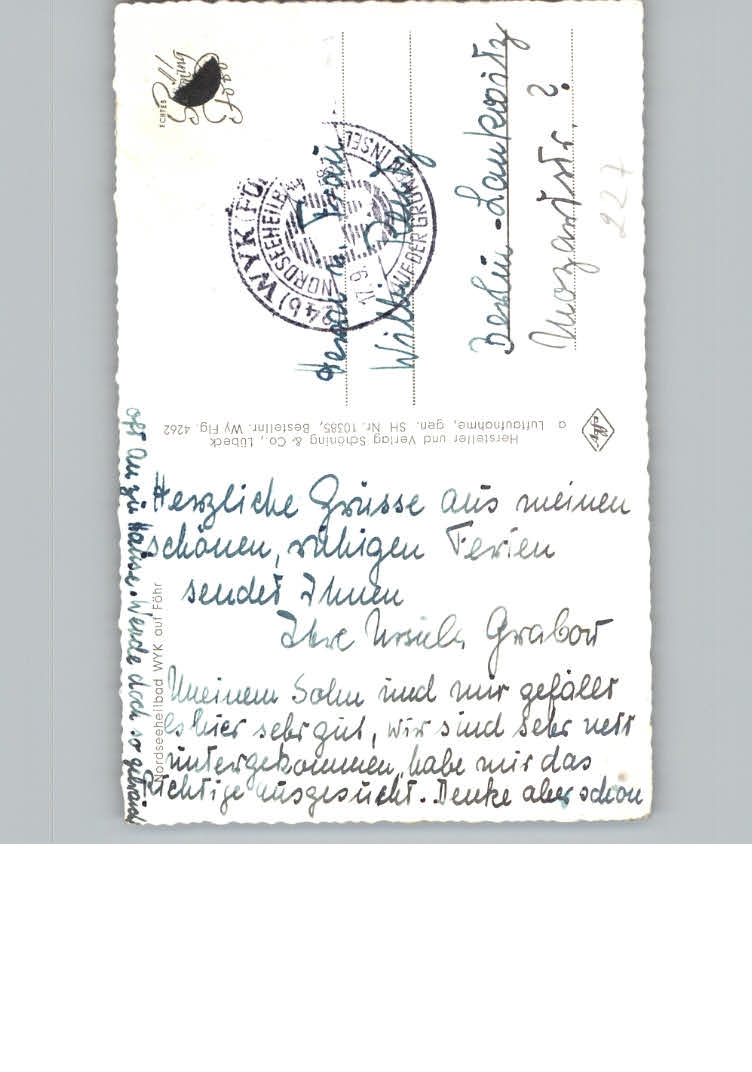 Herzliche Grüsse aus meinen
schönen, ruhigen Ferien
sendet Ihnen
Ihre Ursula Grabow
Meinem Sohn und mir gefällt
es hier sehr gut, wir sind sehr nett
untergekommen, habe mir das
Richtige ausgesucht. Denke aber schon
oft an zu Hause. Werde doch so gebraucht
Nordseeheilbad WYK auf Föhr
Hersteller und Verlag Schöning & Co., Lübeck
a Luftaufnahme, gen. SH Nr. 10385, Bestellnr. Wy Flg. 4262
efby
ECHTES
Schöning
Foto
(24b) WYK (FÖ
NORDSEEHEILBA
AUF DER GRÜNEN INSEL
17.6.
Herrn u. Frau
Willi
Berlin-Lankwitz
Mozartstr. 2
227